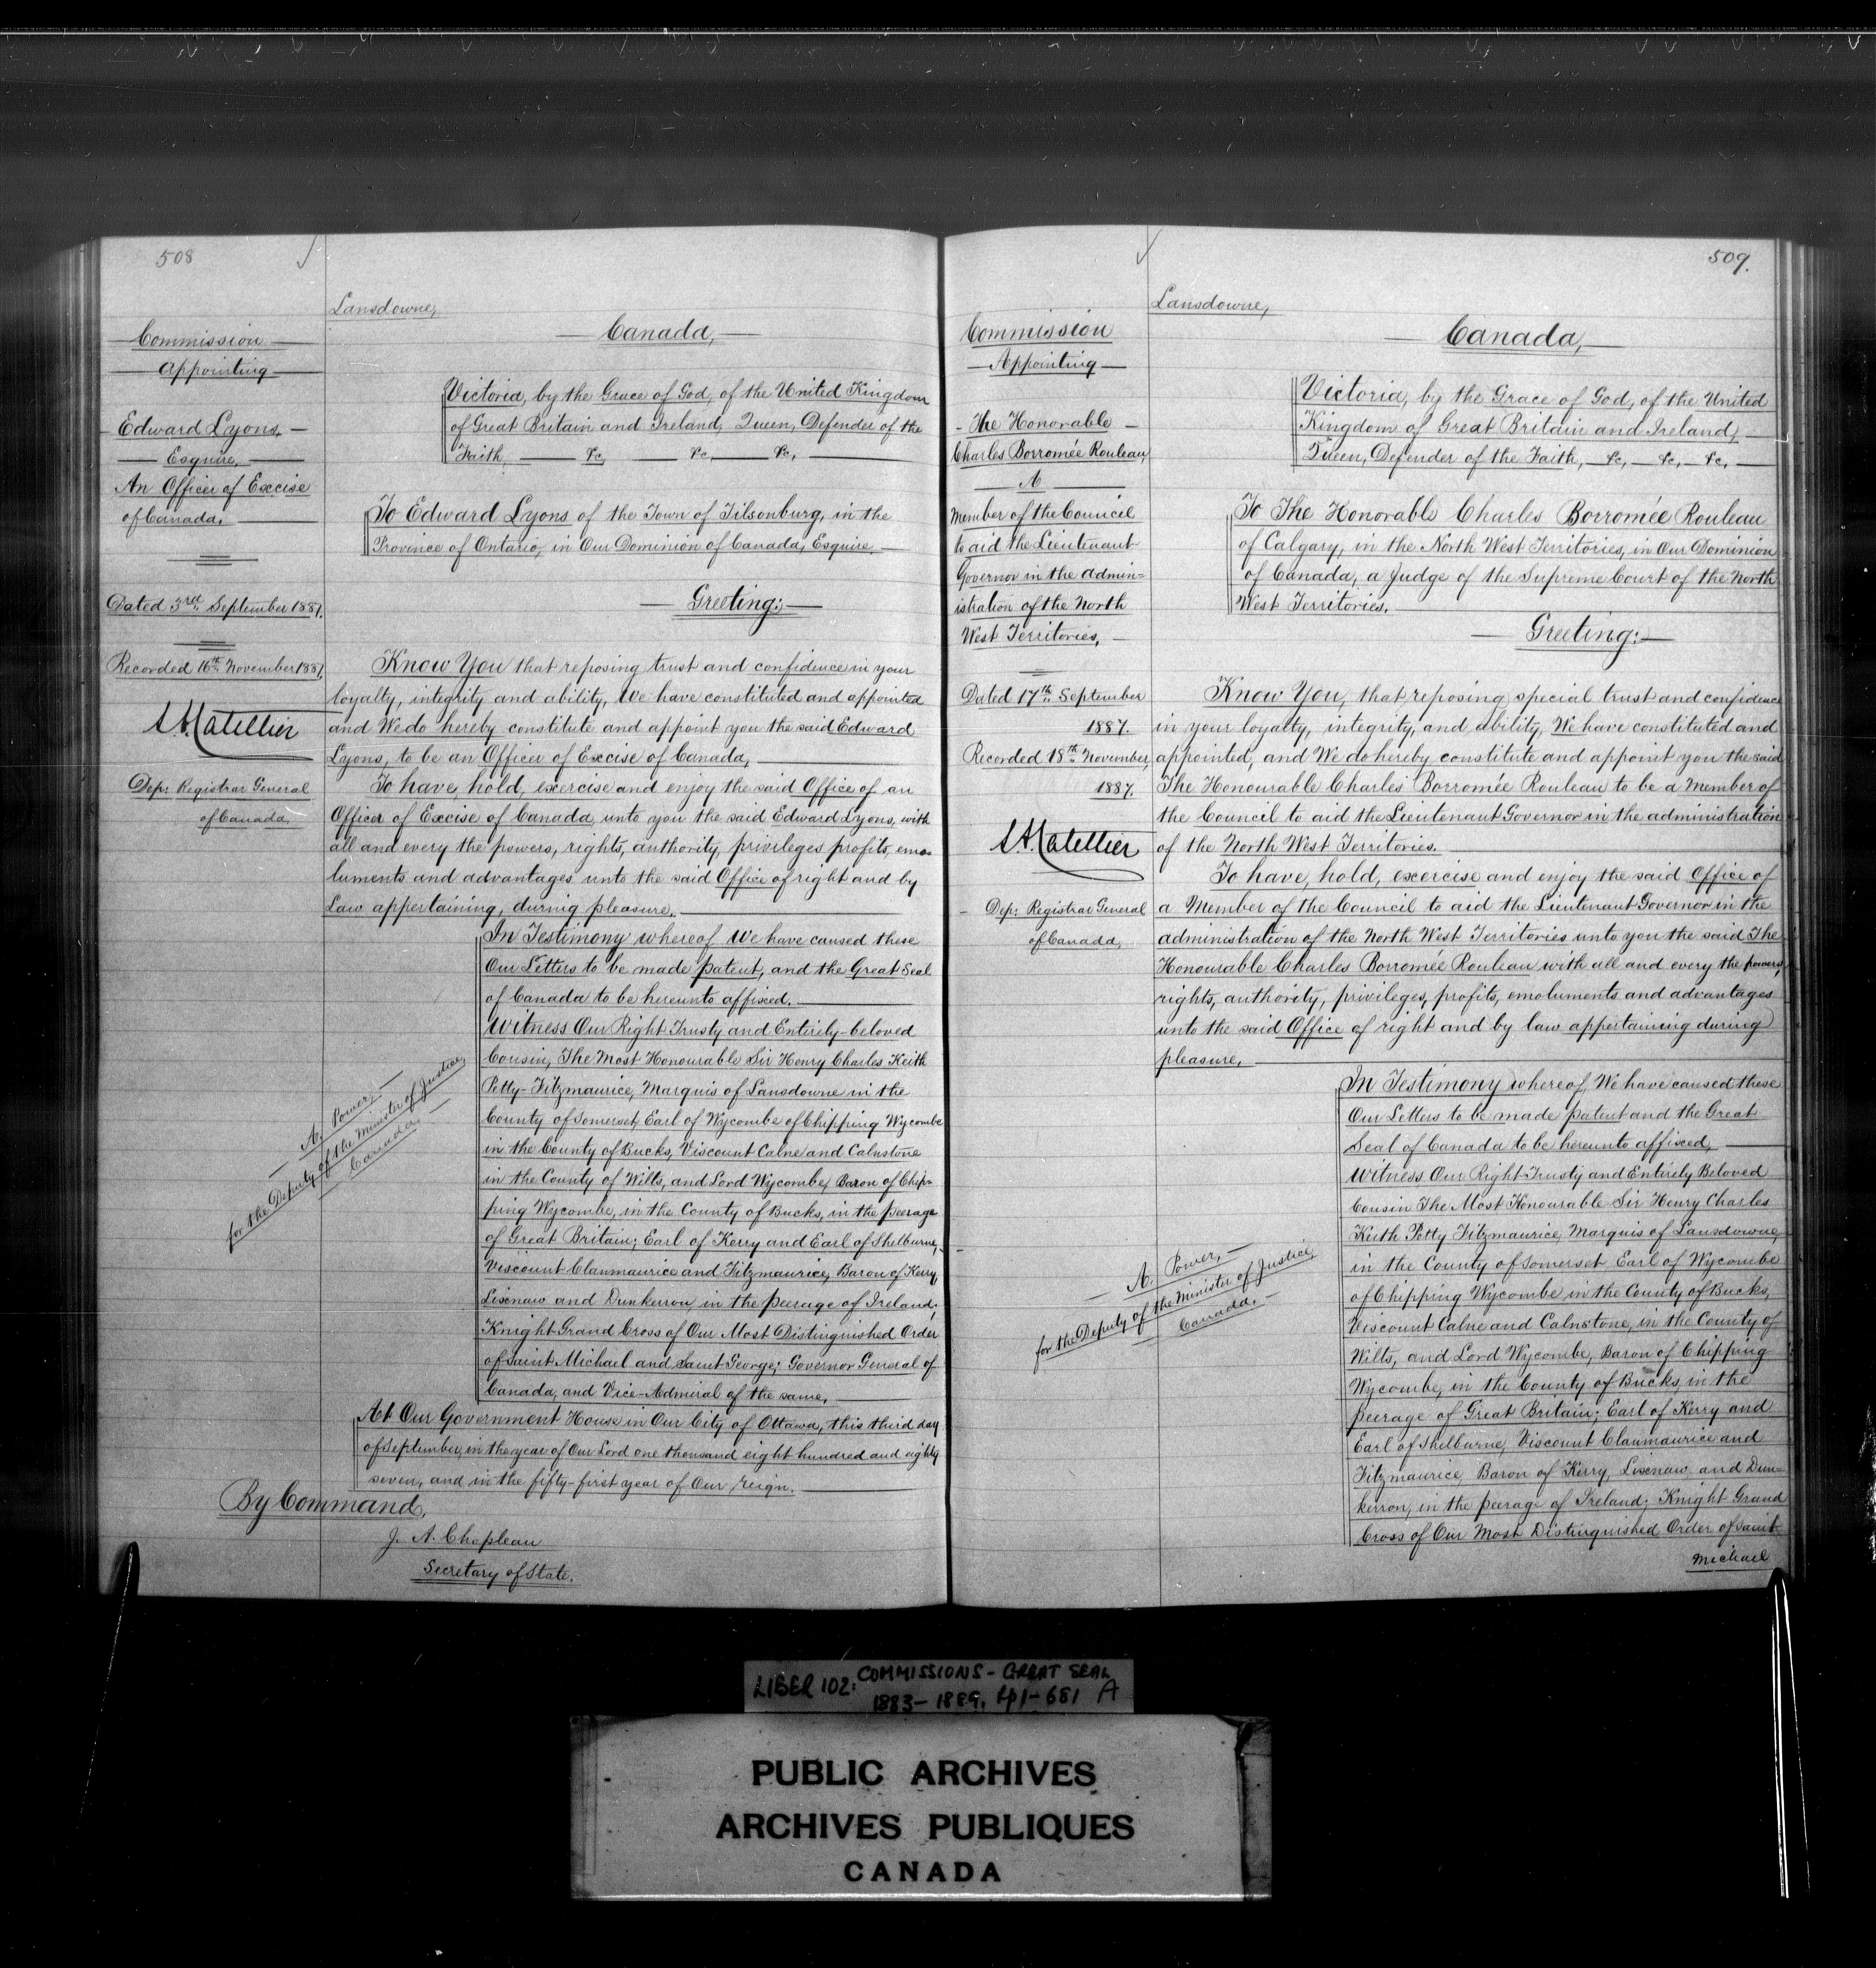 508
Lansdowne,
Commission
appointing
Edward Lyons,
Esquire,
An Officer of Excise
of Canada.
Dated 3rd September 1887.
Recorded 16th November 1887,
Dep: Registrar General
of Canada,
Canada,
Victoria, by the Grace of God, of the United Kingdom
of Great Britain and Ireland, Queen, Defender of the
Faith &c, &c &c,
To Edward Lyons of the Town of Tilsonburg, in the
Province of Ontario, in Our Dominion of Canada, Esquire,
Greeting:
Know You that reposing trust and confidence in your
loyalty, integrity and ability, We have constituted and appointed
and We do hereby constitute and appoint you the said Edward
Lyons, to be an Officer of Excise of Canada,
To have, hold, exercise and enjoy the said Office of an
Officer of Excise of Canada unto you the said Edward Lyons, with
all and every the powers, rights, authority, privileges profits, emo-
luments and advantages unto the said Office of right and by
Law appertaining, during pleasure.
In Testimony whereof We have caused these
Our Letters to be made patent, and the Great Seal
of Canada to be hereunto affixed.
Witness Our Right Trusty and Entirely-beloved
Cousin, The Most Honourable Sir Henry Charles Keith
Petty-Fitzmaurice, Marquis of Lansdowne in the
County of Somerset, Earl of Wycombe of Chipping Wycombe
in the County of Bucks, Viscount Calne and Calnstone
in the County of Wilts, and Lord Wycombe, Baron of Chip-
ping Wycombe, in the County of Bucks, in the peerage
of Great Britain; Earl of Kerry and Earl of Shelburne,
Viscount Clanmaurice and Fitzmaurice, Baron of Kerry,
Lixnaw and Dunkerron in the peerage of Ireland;
Knight Grand Cross of Our Most Distinguished Order
of Saint Michael and Saint George; Governor General of
Canada, and Vice-Admiral of the same,
At Our Government House in Our City of Ottawa, this third day
of September, in the year of Our Lord one thousand eight hundred and eighty
seven, and in the fifty-first year of Our reign.
A. Power,
for the Deputy of the Minister of Justice,
Canada,
By Command,
J. A. Chapleau
Secretary of State.
509.
Lansdowne,
Commission
Appointing
The Honorable
Charles Borromée Rouleau,
A
Member of the Council
to aid the Lieutenant
Governor in the admin=
istration of the North
West Territories,
Dated 17th September
1887.
Recorded 18th November,
1887.
Dep: Registrar General
of Canada,
Canada,
Victoria, by the Grace of God, of the United
Kingdom of Great Britain and Ireland,
Queen, Defender of the Faith, &c, &c, &c,
To The Honorable Charles Borromée Rouleau
of Calgary, in the North West Territories, in Our Dominion
of Canada, a Judge of the Supreme Court of the North
West Territories.
Greeting:
Know You, that reposing special trust and confidence
in your loyalty, integrity, and ability, We have constituted and
appointed, and We do hereby constitute and appoint you the said
The Honourable Charles Borromée Rouleau to be a Member of
the Council to aid the Lieutenant Governor in the administration
of the North West Territories.
To have, hold, exercise and enjoy the said Office of
a Member of the Council to aid the Lieutenant Governor in the
administration of the North West Territories unto you the said The
Honourable Charles Borromée Rouleau with all and every the powers,
rights, authority, privileges, profits, emoluments and advantages
unto the said Office of right and by law appertaining during
pleasure.
In Testimony whereof, We have caused these
Our Letters to be made patent and the Great
Seal of Canada to be hereunto affixed,
Witness Our Right Trusty and Entirely Beloved
Cousin The Most Honourable Sir Henry Charles
Keith Petty Fitzmaurice, Marquis of Lansdowne,
in the County of Somerset Earl of Wycombe
of Chipping Wycombe in the County of Bucks,
Viscount Calne and Calnstone, in the County of
Wilts, and Lord Wycombe, Baron of Chipping
Wycombe, in the County of Bucks, in the
peerage of Great Britain; Earl of Kerry and
Earl of Shelburne, Viscount Clanmaurice and
Fitzmaurice, Baron of Kerry, Lixnaw and Dun=
kerron, in the peerage of Ireland; Knight Grand
Cross of Our Most Distinguished Order of Saint
Michael
A. Power,
for the Deputy of the Minister of Justice,
Canada.
LIBER 102: COMMISSIONS - GREAT SEAL
1883-1889, pp1-681 A
PUBLIC ARCHIVES
ARCHIVES PUBLIQUES
CANADA